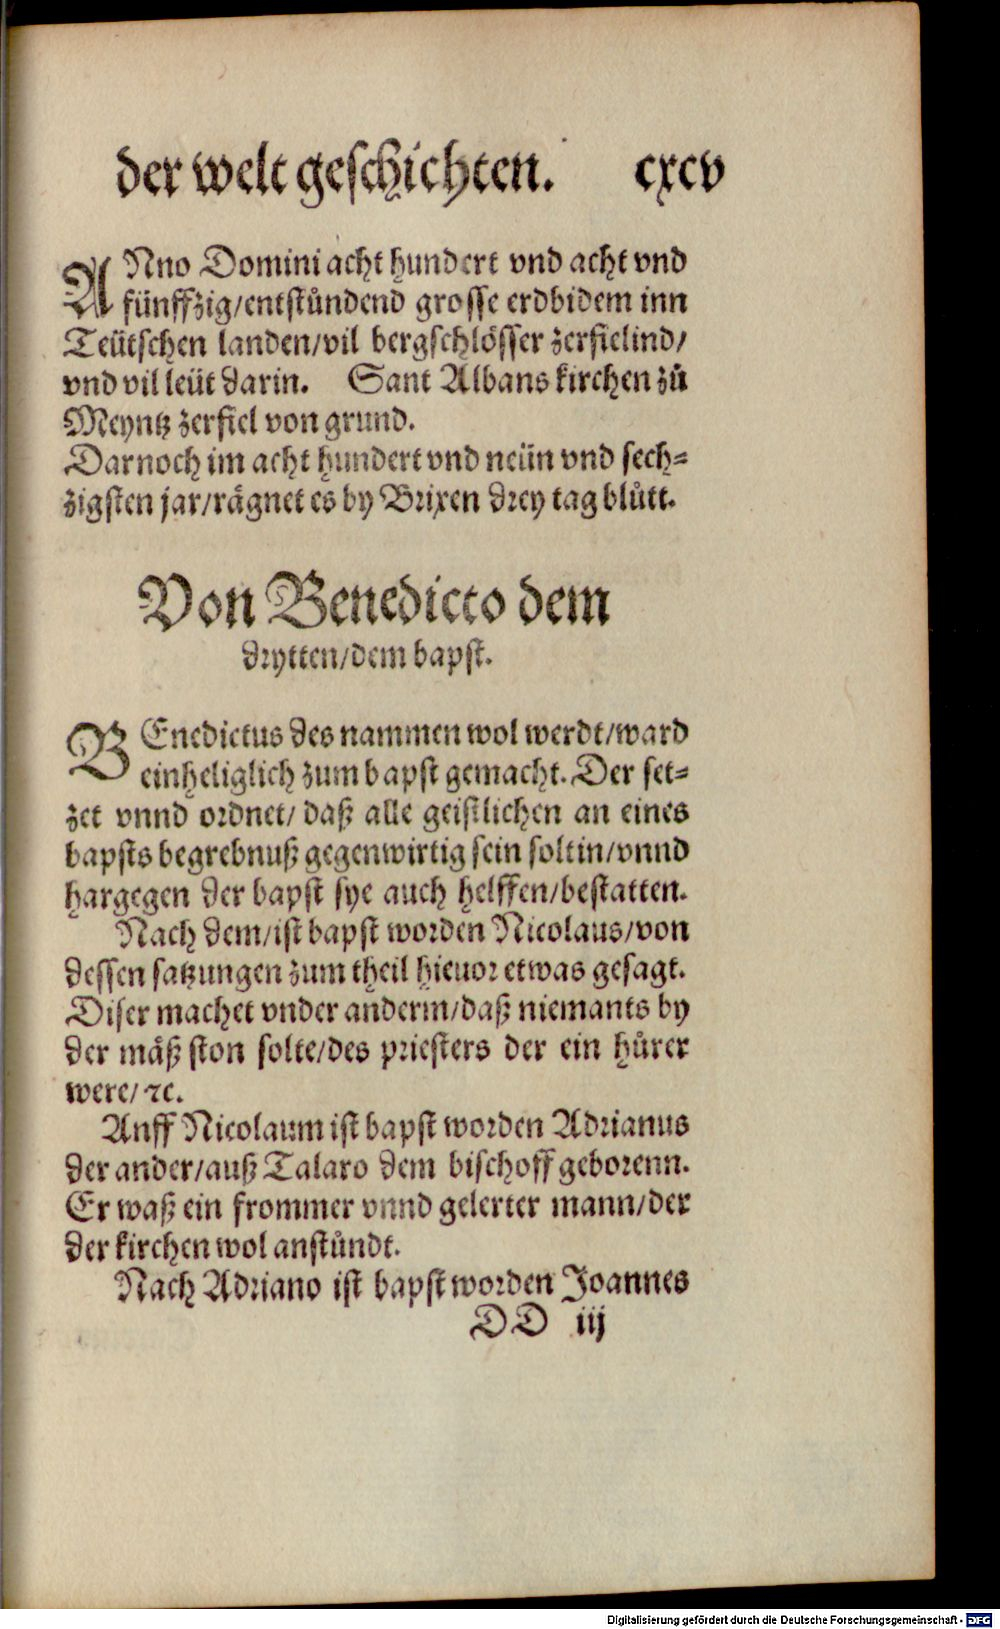 der welt geschichten. cxcv
ANno Domini acht hundert vnd acht vnd
fünffzig/entstůndend grosse erdbidem inn
Teütschen landen/vil bergschlösser zerfielind/
vnd vil leüt darin. Sant Albans kirchen zů
Meyntz zerfiel von grund.
Darnoch im acht hundert vnd neün vnd sech⸗
zigsten jar/rägnet es by Brixen drey tag blůtt.
Von Benedicto dem
drytten/dem bapst.
BEnedictus des nammen wol werdt/ward
einheliglich zum bapst gemacht. Der set⸗
zet vnnd ordnet/ daß alle geistlichen an eines
bapsts begrebnuß gegenwirtig sein soltin/vnnd
hargegen der bapst sye auch helffen/bestatten.
Nach dem/ist bapst worden Nicolaus/von
dessen satzungen zum theil hieuor etwas gesagt.
Diser machet vnder anderm/daß niemants by
der mäß ston solte/des priesters der ein hůrer
were/ ꝛc.
Anff Nicolaum ist bapst worden Adrianus
der ander/auß Talaro dem bischoff geborenn.
Er waß ein frommer vnnd gelerter mann/der
der kirchen wol anstůndt.
Nach Adriano ist bapst worden Joannes
DD iij
Digitalisierung gefördert durch die Deutsche Forschungsgemeinschaft - DFG